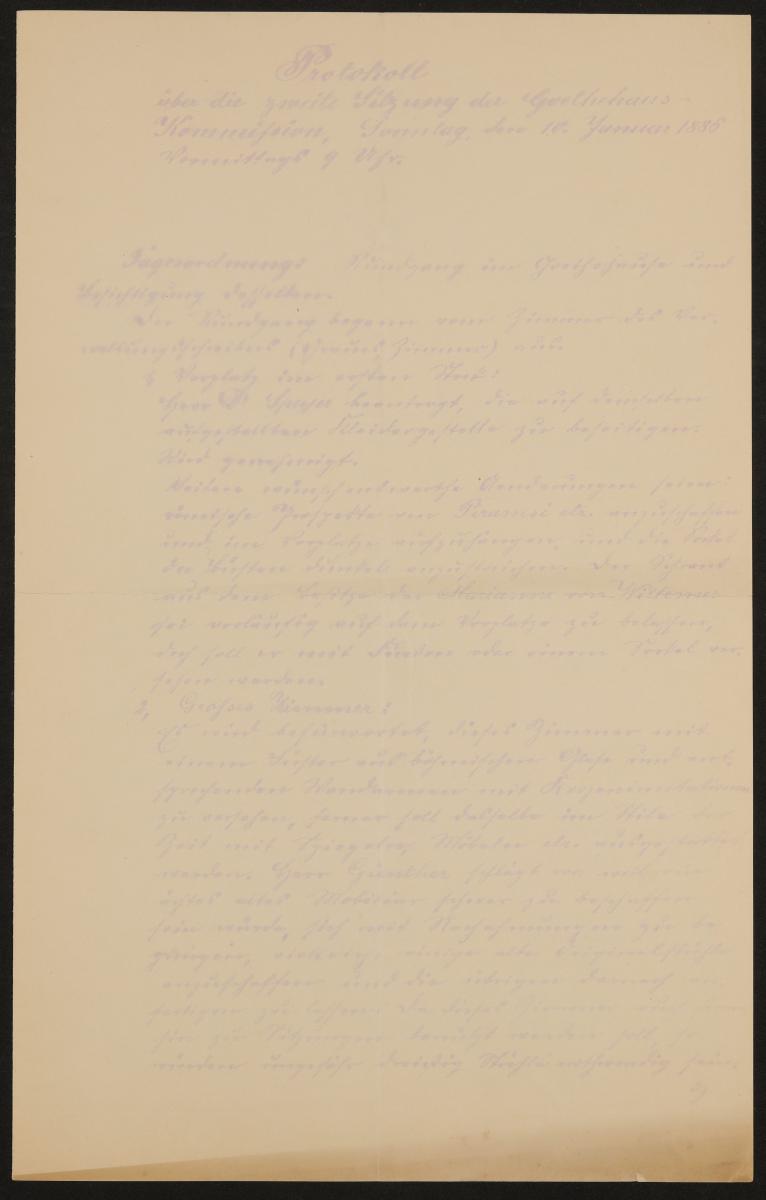 Protokoll
über die zweite Sitzung der Goethehaus-
Kommission, Sonntag, den 10. Januar 1886
Vormittags 9 Uhr.
Tagesordnung: Rundgang im Goethehause und
Besichtigung desselben.
Der Rundgang begann vom Zimmer des Ver-
waltungsschreibers ( Zimmer) aus.
1, Vorplatz im ersten Stock:
Herr Dr beantragt, die auf demselben
aufgestellten Kleidergestelle zu beseitigen.
Wird genehmigt.
Weitere wünschenswerthe Aenderungen seien:
römische Prospekte von Piranesi etc. anzuschaffen
und im Vorplatze aufzuhängen, und die Sockel
der Büsten dunkel anzustreichen. Der Schrank
aus dem Besitze der Marianne von Willemer
sei vorläufig auf dem Vorplatze zu belassen,
doch soll er mit oder einem Sockel ver-
sehen werden.
2, Grosses Zimmer:
Es wird befürwortet, dieses Zimmer mit
einem Lüster aus böhmischem Glase und ent-
sprechenden Wandarmen mit Kerzenimitationen
zu versehen, ferner soll dasselbe im Stile der
Zeit mit Spiegeln, Möbeln etc. ausgestattet
werden. Herr Günther schlägt vor, weil
ächtes altes Mobiliar schwer zu beschaffen
sein würde, sich mit Nachahmungen zu be-
gnügen, einige alte Originalstühle
anzuschaffen und die übrigen darnach an-
fertigen zu lassen. Da dieses Zimmer auch
hin zu Sitzungen benützt werden soll, so
würden ungefähr dreissig Stühle nothwendig sein.